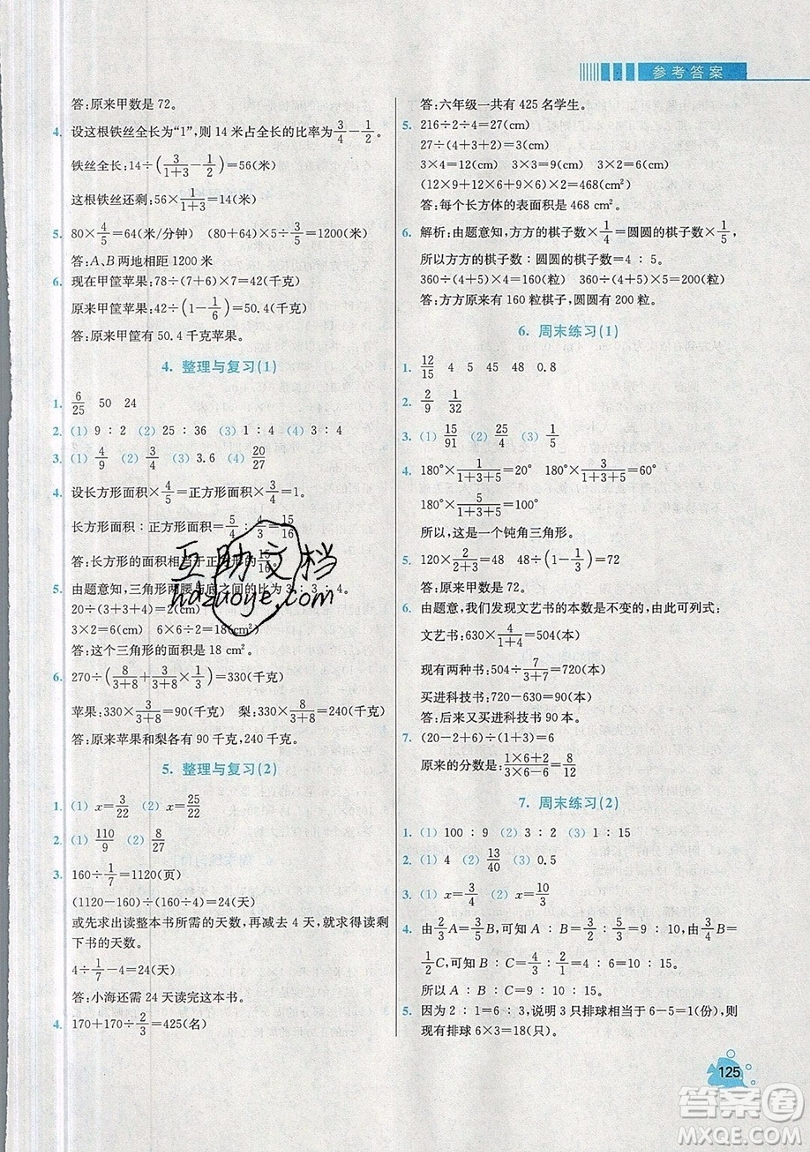 参考答案
答:原来甲数是 72。
4. 设这根铁丝全长为“1”,则 14 米占全长的比率为 3/4 - 1/2。
铁丝全长:14÷(3/(1+3) - 1/2)=56(米)
这根铁丝还剩:56×1/(1+3)=14(米)
5. 80×4/5=64(米/分钟) (80+64)×5÷3/5=1200(米)
答:A、B 两地相距 1200 米
6. 现在甲筐苹果:78÷(7+6)×7=42(千克)
原来甲筐苹果:42÷(1-1/6)=50.4(千克)
答:原来甲筐有 50.4 千克苹果。
4. 整理与复习(1)
1. 6/25 50 24
2. (1) 9 : 2 (2) 25 : 36 (3) 1 : 4 (4) 3 : 4
3. (1) 4/9 (2) 3/4 (3) 3.6 (4) 20/27
4. 设长方形面积×4/5=正方形面积×3/4=1。
长方形面积 : 正方形面积=5/4 : 4/3=15/16
答:长方形的面积相当于正方形的15/16。
5. 由题意知,三角形两腰与底之间的比为 3 : 3 : 4。
20÷(3+3+4)=2(cm)
3×2=6(cm) 6×6÷2=18(cm²)
答:这个三角形的面积是 18 cm²。
6. 270÷(8/(3+8)+3/(3+8)×1/3)=330(千克)
苹果:330×3/(3+8)=90(千克) 梨:330×8/(3+8)=240(千克)
答:原来苹果和梨各有 90 千克,240 千克。
5. 整理与复习(2)
1. (1) x=3/22 (2) x=25/22
2. (1) 110/9 (2) 8/27
3. 160÷1/7=1120(页)
(1120-160)÷(160÷4)=24(天)
或先求出读整本书所需的天数,再减去 4 天,就求得读剩
下书的天数。
4÷1/7-4=24(天)
答:小海还需 24 天读完这本书。
4. 170+170÷2/3=425(名)
答:六年级一共有 425 名学生。
5. 216÷2÷4=27(cm)
27÷(4+3+2)=3(cm)
3×4=12(cm) 3×3=9(cm) 3×2=6(cm)
(12×9+6×9+12×6)×2=468(cm²)
答:每个长方体的表面积是 468 cm²。
6. 解析:由题意知,方方的棋子数×1/4=圆圆的棋子数×1/5,
所以方方的棋子数 : 圆圆的棋子数=4 : 5。
360÷(4+5)×4=160(粒) 360÷(4+5)×5=200(粒)
答:方方原来有 160 粒棋子,圆圆有 200 粒。
6. 周末练习(1)
1. 12/15 4 5 45 48 0.8
2. 2/9 1/32
3. (1) 15/91 (2) 25/4 (3) 1/5
4. 180°×1/(1+3+5)=20° 180°×3/(1+3+5)=60°
180°×5/(1+3+5)=100°
所以,这是一个钝角三角形。
5. 120×2/(2+3)=48 48÷(1-1/3)=72
答:原来甲数是 72。
6. 由题意,我们发现文艺书的本数是不变的,由此可列式:
文艺书:630×4/(1+4)=504(本)
现有两种书:504÷7/(3+7)=720(本)
买进科技书:720-630=90(本)
答:后来又买进科技书 90 本。
7. (20-2-6)÷(1+3)=6
原来的分数是:(1×6+2)/(3×6-6)=8/12
7. 周末练习(2)
1. (1) 100 : 9 (2) 3 : 2 (3) 1 : 15
2. (1) 4 (2) 13/40 (3) 0.5
3. (1) x=3/4 (2) x=10/3
4. 由2/3A=3/5B,可知 A : B=3/5 : 2/3=9 : 10,由3/4B=
1/2C,可知 B : C=1/2 : 3/4=2 : 3=10 : 15。
所以 A : B : C=9 : 10 : 15。
5. 因为 2 : 1=6 : 3,说明 3 只排球相当于 6-5=1(份),则
现有排球 6×3=18(只)。
125
互助文档
hdzuoye.com
答案圈
MXQE.COM